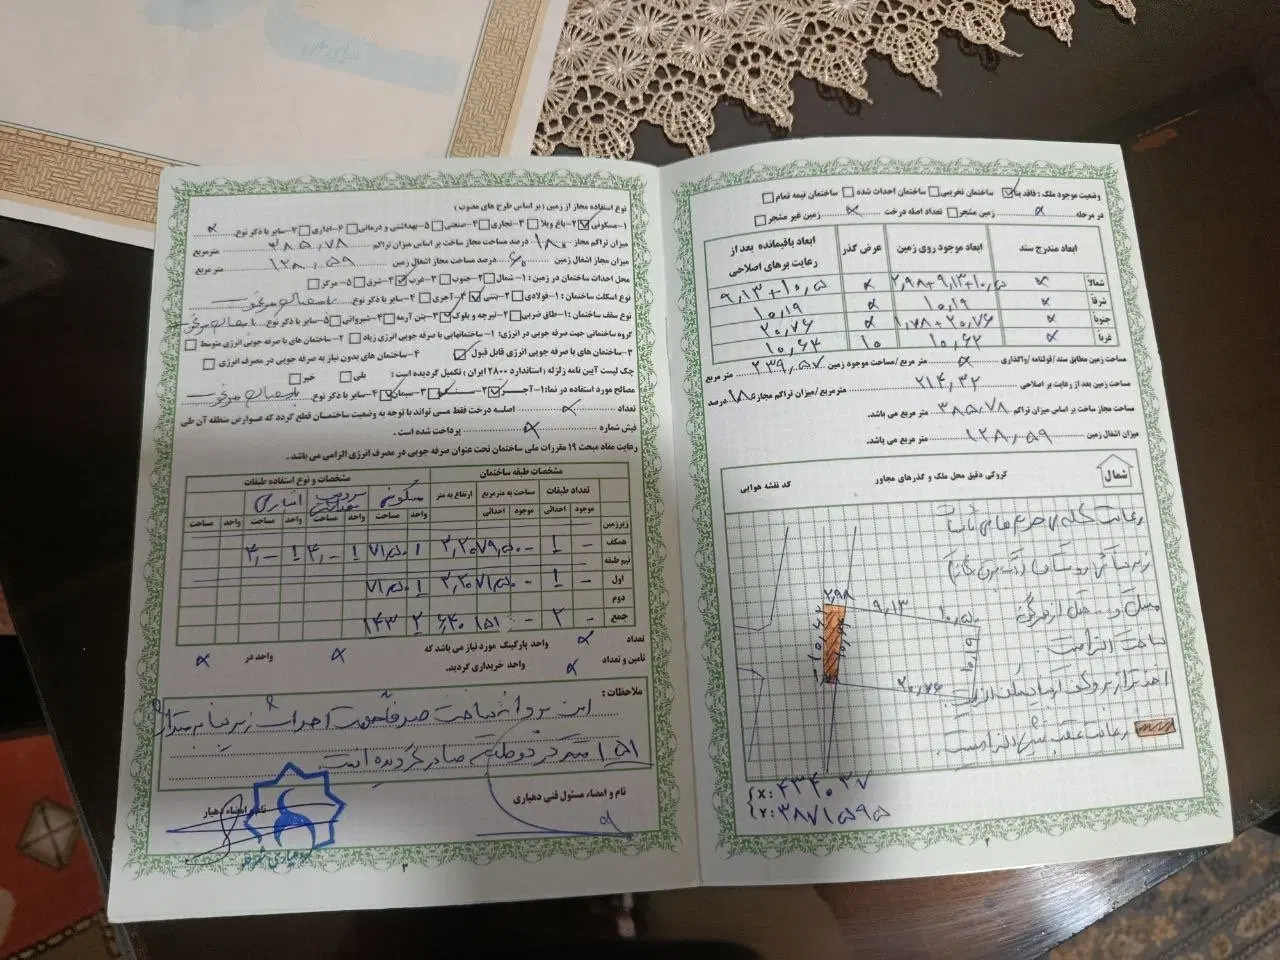 وضعیت موجود ملک : فاقد بنا ☑ ساختمان تخریبی ☐ ساختمان احداث شده ☐ ساختمان نیمه تمام ☐
در مرحله زمین مشجر ☐ تعداد اصله درخت زمین غیر مشجر ☐
ابعاد مندرج سند ابعاد موجود روی زمین عرض گذر ابعاد باقیمانده بعد از رعایت برهای اصلاحی
شمالاً ۲٫۹۸+۹٫۱۳+۱۰٫۵ ۹٫۱۳+۱۰٫۵
شرقاً ۱۰٫۱۹ ۱۰٫۱۹
جنوباً ۱٫۷۸+۲۰٫۷۶ ۲۰٫۷۶
غرباً ۱۰٫۶۲ ۱۰ ۱۰٫۶۴
مساحت زمین مطابق سند/قولنامه/واگذاری متر مربع /مساحت موجود زمین ۲۳۹٫۵۷ متر مربع
مساحت زمین بعد از رعایت بر اصلاحی ۲۱۴٫۳۲ مترمربع/میزان تراکم مجاز ۱۸۰ درصد
مساحت مجاز ساخت بر اساس میزان تراکم ۳۸۵٫۷۸ متر مربع می باشد.
میزان اشغال زمین ۱۲۸٫۵۹ متر مربع می باشد.
شمال
کروکی دقیق محل ملک و گذرهای مجاور کد نقشه هوایی
رعایت کلیه حریم های تاسیسات
زیربنائی روستا (آب برق گاز)
ساخت الزامیست.
رعایت عقب نشینی الزامیست
۲٫۹۸
۹٫۱۳
۱۰٫۵۰
۲۰٫۷۶
X: ۴۳۴۰۳۷
Y: ۳۸۷۱۵۹۵
۲
نوع استفاده مجاز از زمین (بر اساس طرح های مصوب )
۱-مسکونی ☑ ۲-باغ ویلا ☐ ۳-تجاری ☐ ۴-صنعتی ☐ ۵-بهداشتی و درمانی ☐ ۶-اداری ☐ ۷-سایر با ذکر نوع
میزان تراکم مجاز ۱۸۰ درصد مساحت مجاز ساخت بر اساس میزان تراکم ۳۸۵٫۷۸ مترمربع
میزان مجاز اشغال زمین ۶۰ درصد مساحت مجاز اشغال زمین ۱۲۸٫۵۹ متر مربع
محل احداث ساختمان در زمین : ۱-شمال ☐ ۲-جنوب ☐ ۳-غرب ☑ ۴-شرق ☐ ۵-مرکز ☐
نوع اسکلت ساختمان : ۱-فولادی ☐ ۲-بتنی ☑ ۳-آجری ☐ ۴-سایر با ذکر نوع
نوع سقف ساختمان : ۱-طاق ضربی ☐ ۲-تیرچه و بلوک ☑ ۳-بتن آرمه ☐ ۴-شیروانی ☐ ۵-سایر با ذکر نوع
گروه ساختمانی جهت صرفه جویی در انرژی: ۱-ساختمانهایی با صرفه جویی انرژی زیاد ☐ ۲-ساختمان های با صرفه جویی انرژی متوسط ☐
۳-ساختمان های با صرفه جویی انرژی قابل قبول ☑ ۴-ساختمان های بدون نیاز به صرفه جویی در مصرف انرژی ☐
چک لیست آیین نامه زلزله ( استاندارد ۲۸۰۰ ایران ) تکمیل گردیده است : بلی ☐ خیر ☐
مصالح مورد استفاده در نما: ۱-آجر ☑ ۲-سنگ ☑ ۳-سیمان ☑ ۴-سایر با ذکر نوع
تعداد اصله درخت فقط می تواند با توجه به وضعیت ساختمان قطع گردد که عوارض منطقه آن طی
فیش شماره پرداخت شده است .
رعایت مفاد مبحث ۱۹ مقررات ملی ساختمان تحت عنوان صرفه جویی در مصرف انرژی الزامی می باشد .
مشخصات طبقه ساختمان مشخصات و نوع استفاده طبقات
تعداد طبقات مساحت به مترمربع ارتفاع به متر مسکونی انباری
موجود احداثی موجود احداثی واحد مساحت واحد مساحت واحد مساحت واحد مساحت
زیرزمین
همکف - ۱ - ۷۹٫۵۰ ۳٫۲۰ ۱ ۷۱٫۵۰ ۱ ۴٫۰۰ ۱ ۴٫۰۰
نیم طبقه
اول - ۱ - ۷۱٫۵۰ ۳٫۲۰ ۱ ۷۱٫۵۰
دوم
جمع - ۲ - ۱۵۱ ۶٫۴۰ ۲ ۱۴۳
تعداد واحد پارکینگ مورد نیاز می باشد که واحد در
تأمین و تعداد واحد خریداری گردید.
ملاحظات :
این پروانه ساخت صرفا جهت احداث زیربنا به مقدار
۱۵۱ متر در دو طبقه صادر گردیده است
نام و امضاء مسئول فنی دهیاری
نام و امضاء دهیار
۳